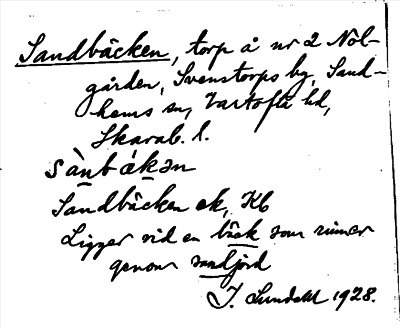 Sandbäcken, torp å nr 2 Nol-
gården, Svenstorps by, Sand-
hems sn, Vartofta hd,
Skarab. l.
sànbákən
Sandbäcken ek, Kb
Ligger vid en bäck som rinner
genom sandjord
J. Lundahl 1928.